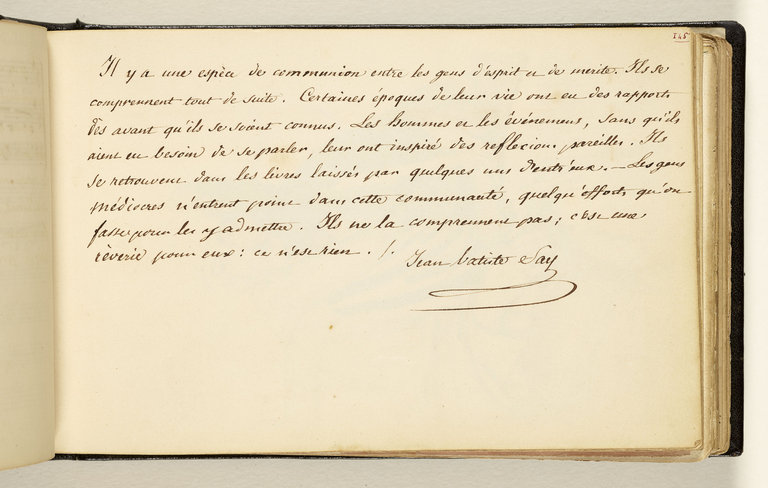 145
Il y a une espèce de communion entre les gens d'esprit et de merite. Ils se
comprennent tout de suite. Certaines époques de leur vie ont eu des rapports
dès avant qu'ils se soient connus. Les hommes et les événemens, sans qu'ils
aient eu besoin de se parler, leur ont inspiré des reflecions pareilles. Ils
se retrouvent dans les livres laissés par quelques uns d'entr'eux. — Les gens
médiocres n'entrent point dans cette communauté, quelqu'efforts qu'on
fasse pour les y admettre. Ils ne la comprennent pas; c'est une
rêverie pour eux: ce n'est rien. /.
Jean batiste Say